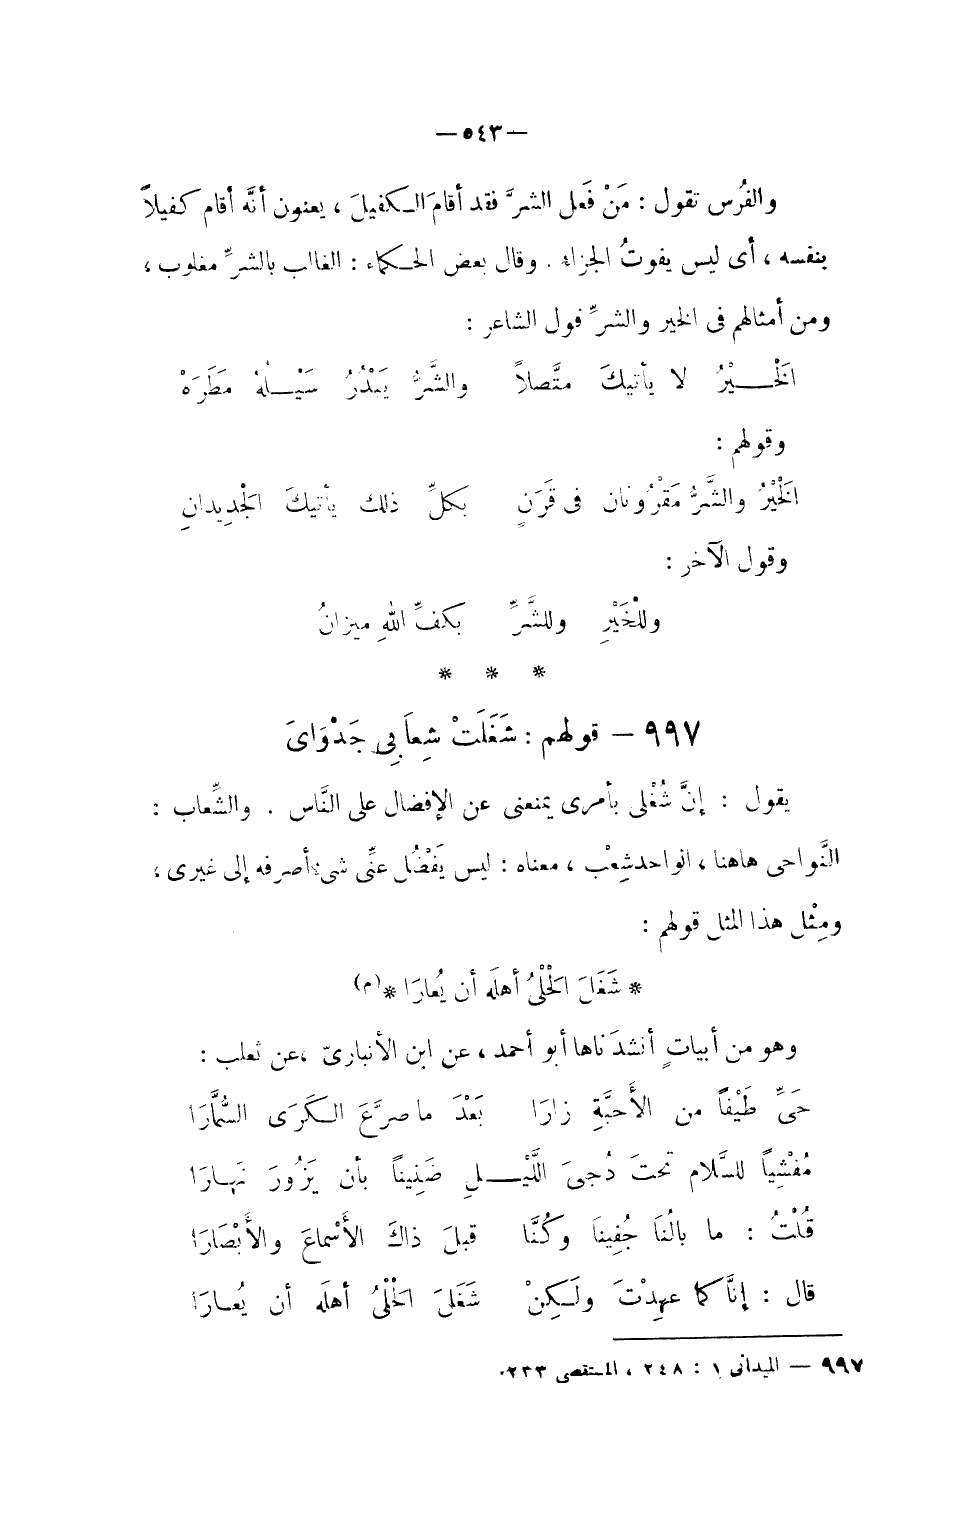 — ٥٤٣ —
والفُرس تقول : مَنْ فَعل الشرَّ فقد أقامَ الـكفيلَ ، يعنون أنَّه أقام كفيلاً
بنفسه ، أى ليس يفوتُ الجزاء . وقال بعض الحـكماء : الغالب بالشرِّ مغلوب ،
ومن أمثالهم فى الخير والشرِّ قول الشاعر :
الخْـــيْرُ لا يأتيكَ متَّصلاً والشَّرُّ يَبْدُرُ سَيْــلهُ مَطَرَهْ
وقولهم :
الخْيْرُ والشَّرُّ مَقْرُونان فى قَرَنٍ بكلِّ ذلك يأتيكَ الجديدانِ
وقول الآخر :
وللْخَيْرِ وللشَّرِّ بكفِّ اللهِ ميزانُ
* * *
٩٩٧ — قولهم : شَغَلَتْ شِعاَبِي جَدْوَاىَ
يقول : إنَّ شُغْلى بأمرى يمنعنى عن الإفضال على النَّاس . والشِّعاب :
النَّواحى هاهنا ، الواحد شِعْب ، معناه : ليس يَفْضُل عنِّى شىء أصرفه إلى غيرى ،
ومِثْل هذا المثل قولهم :
* شَغَلَ الحْلْىُ أهلَه أن يُعارَا * (م)
وهو من أبياتٍ أنشدَناها أبو أحمد ، عن ابن الأنبارىّ ، عن ثعلب :
حَىِّ طَيْفاً من الأَحبَّةِ زارَا بَعْدَ ما صرَّعَ الـكَرَى السُّمَّارَا
مُفْشِياً للسَّلام تحتَ دُجىَ اللَّيْــلِ ضَنِيناً بأن يَزُورَ نَهـارَا
قُلْتُ : ما بالُناَ جُفِيناَ وكُنَّا قبلَ ذاكَ الأَسْماعَ والأَبْصَارَا
قال : إنَّا كما عهِدْتَ ولَـكِنْ شَغَلَ الحْلْىُ أهلَه أن يُعـارَا
٩٩٧ — الميدانى ١ : ٢٤٨ ، المستقصى ٢٣٣.